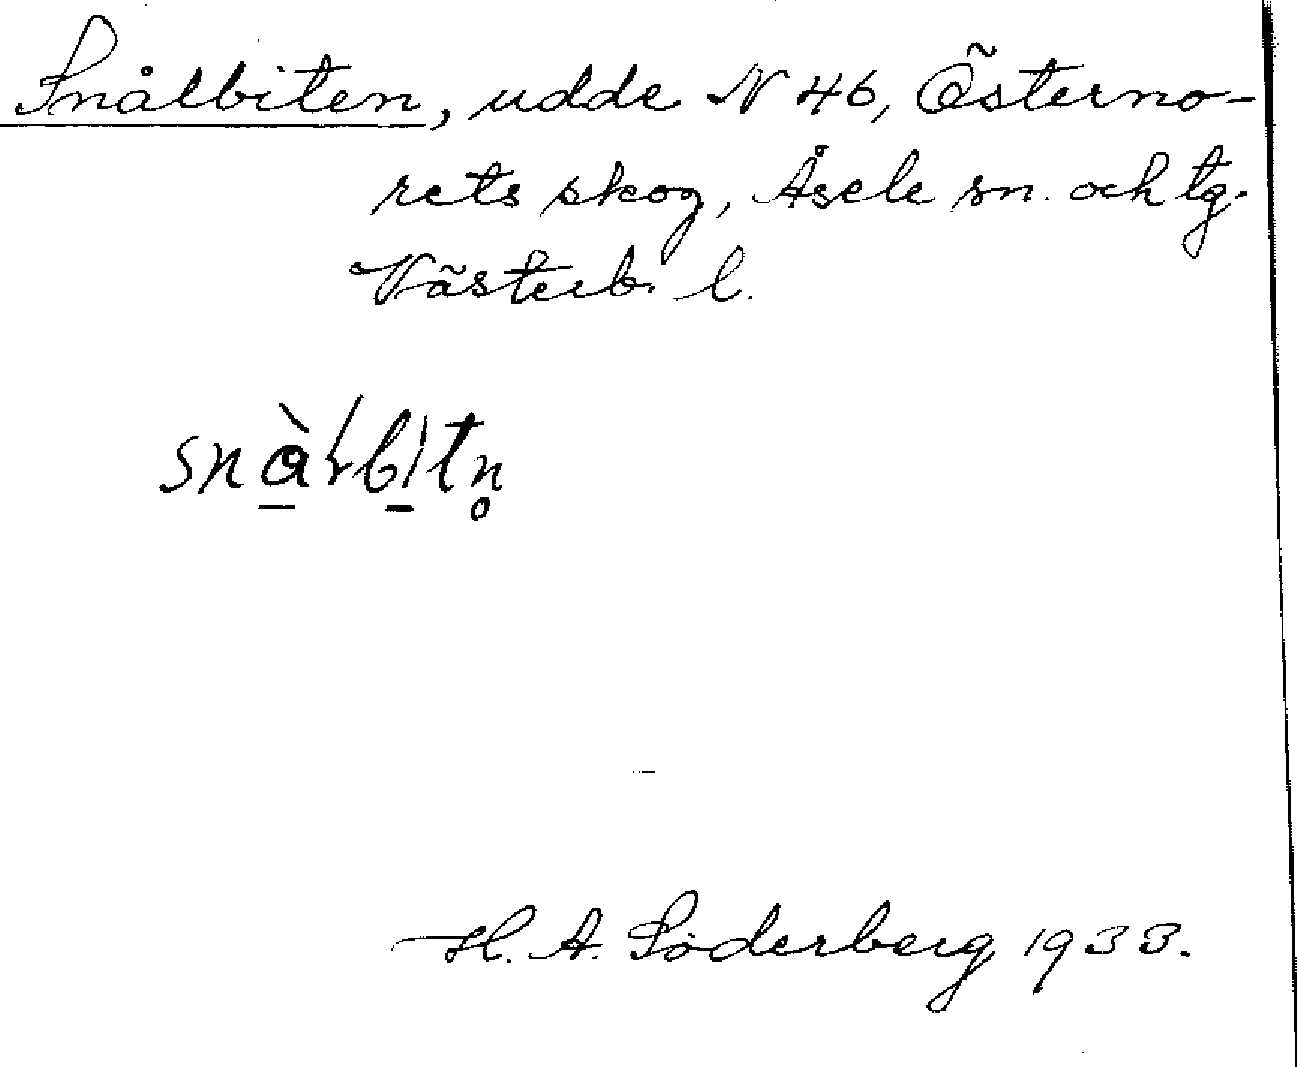 Snålbiten, udde N 46, Österno-
rets skog, Åsele sn. och tg.
Västerb. l.
H. A. Söderberg 1933.